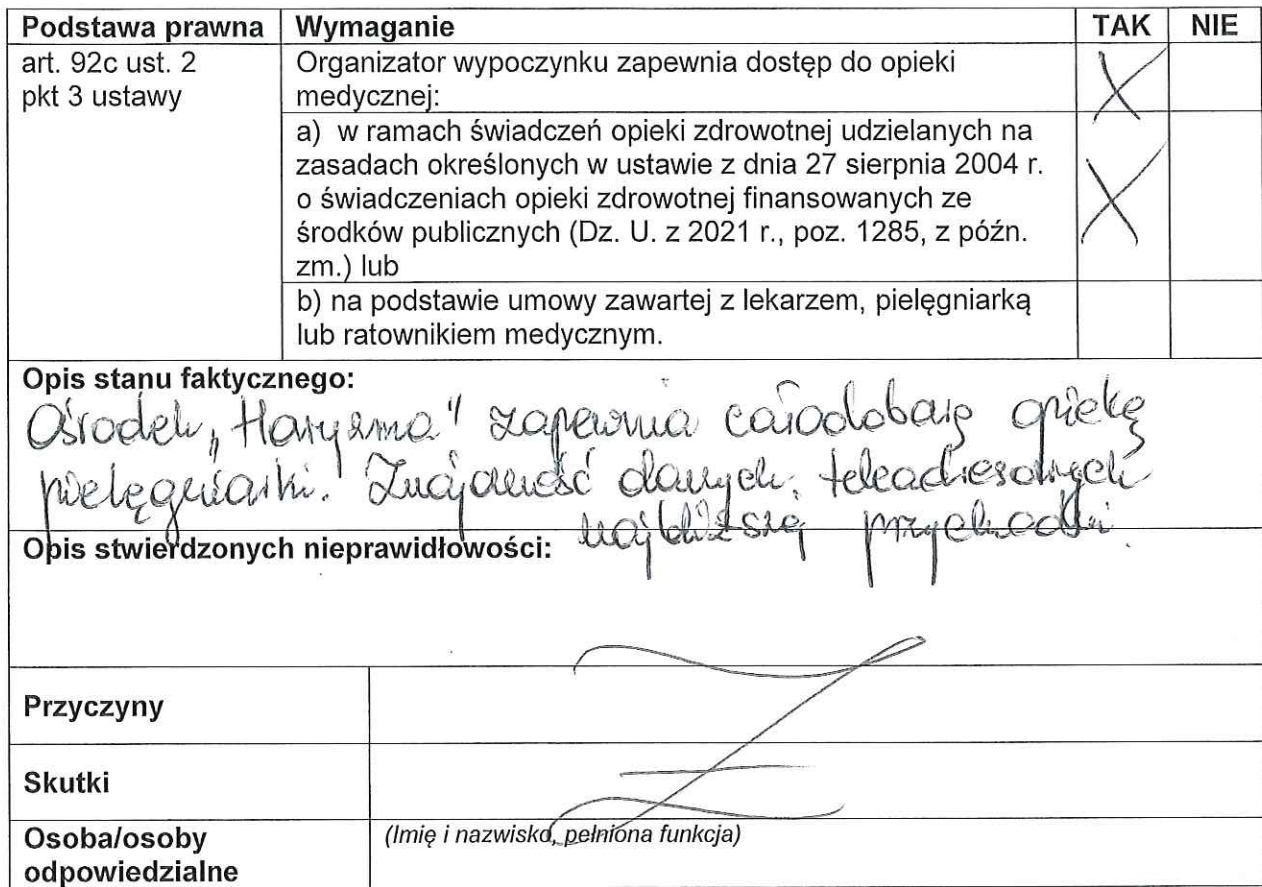 Podstawa prawna Wymaganie TAK NIE
art. 92c ust. 2 Organizator wypoczynku zapewnia dostęp do opieki
pkt 3 ustawy medycznej: X
a) w ramach świadczeń opieki zdrowotnej udzielanych na
zasadach określonych w ustawie z dnia 27 sierpnia 2004 r.
o świadczeniach opieki zdrowotnej finansowanych ze X
środków publicznych (Dz. U. z 2021 r., poz. 1285, z późn.
zm.) lub
b) na podstawie umowy zawartej z lekarzem, pielęgniarką
lub ratownikiem medycznym.
Opis stanu faktycznego:
Ośrodek „Haryzma" zapewnia całodobową opiekę
pielęgniarki. Znajomość danych teleadresowych
najbliższej przychodni.
Opis stwierdzonych nieprawidłowości:
Przyczyny
Skutki
Osoba/osoby (Imię i nazwisko, pełniona funkcja)
odpowiedzialne